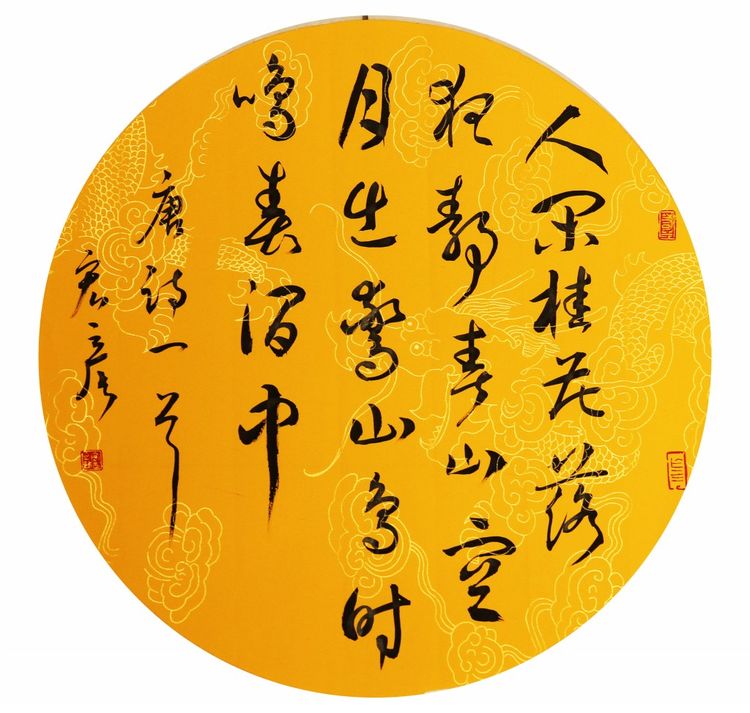 人闲桂花落
夜静春山空
月出驚山鸟时
鸣春涧中
唐诗一首
宏